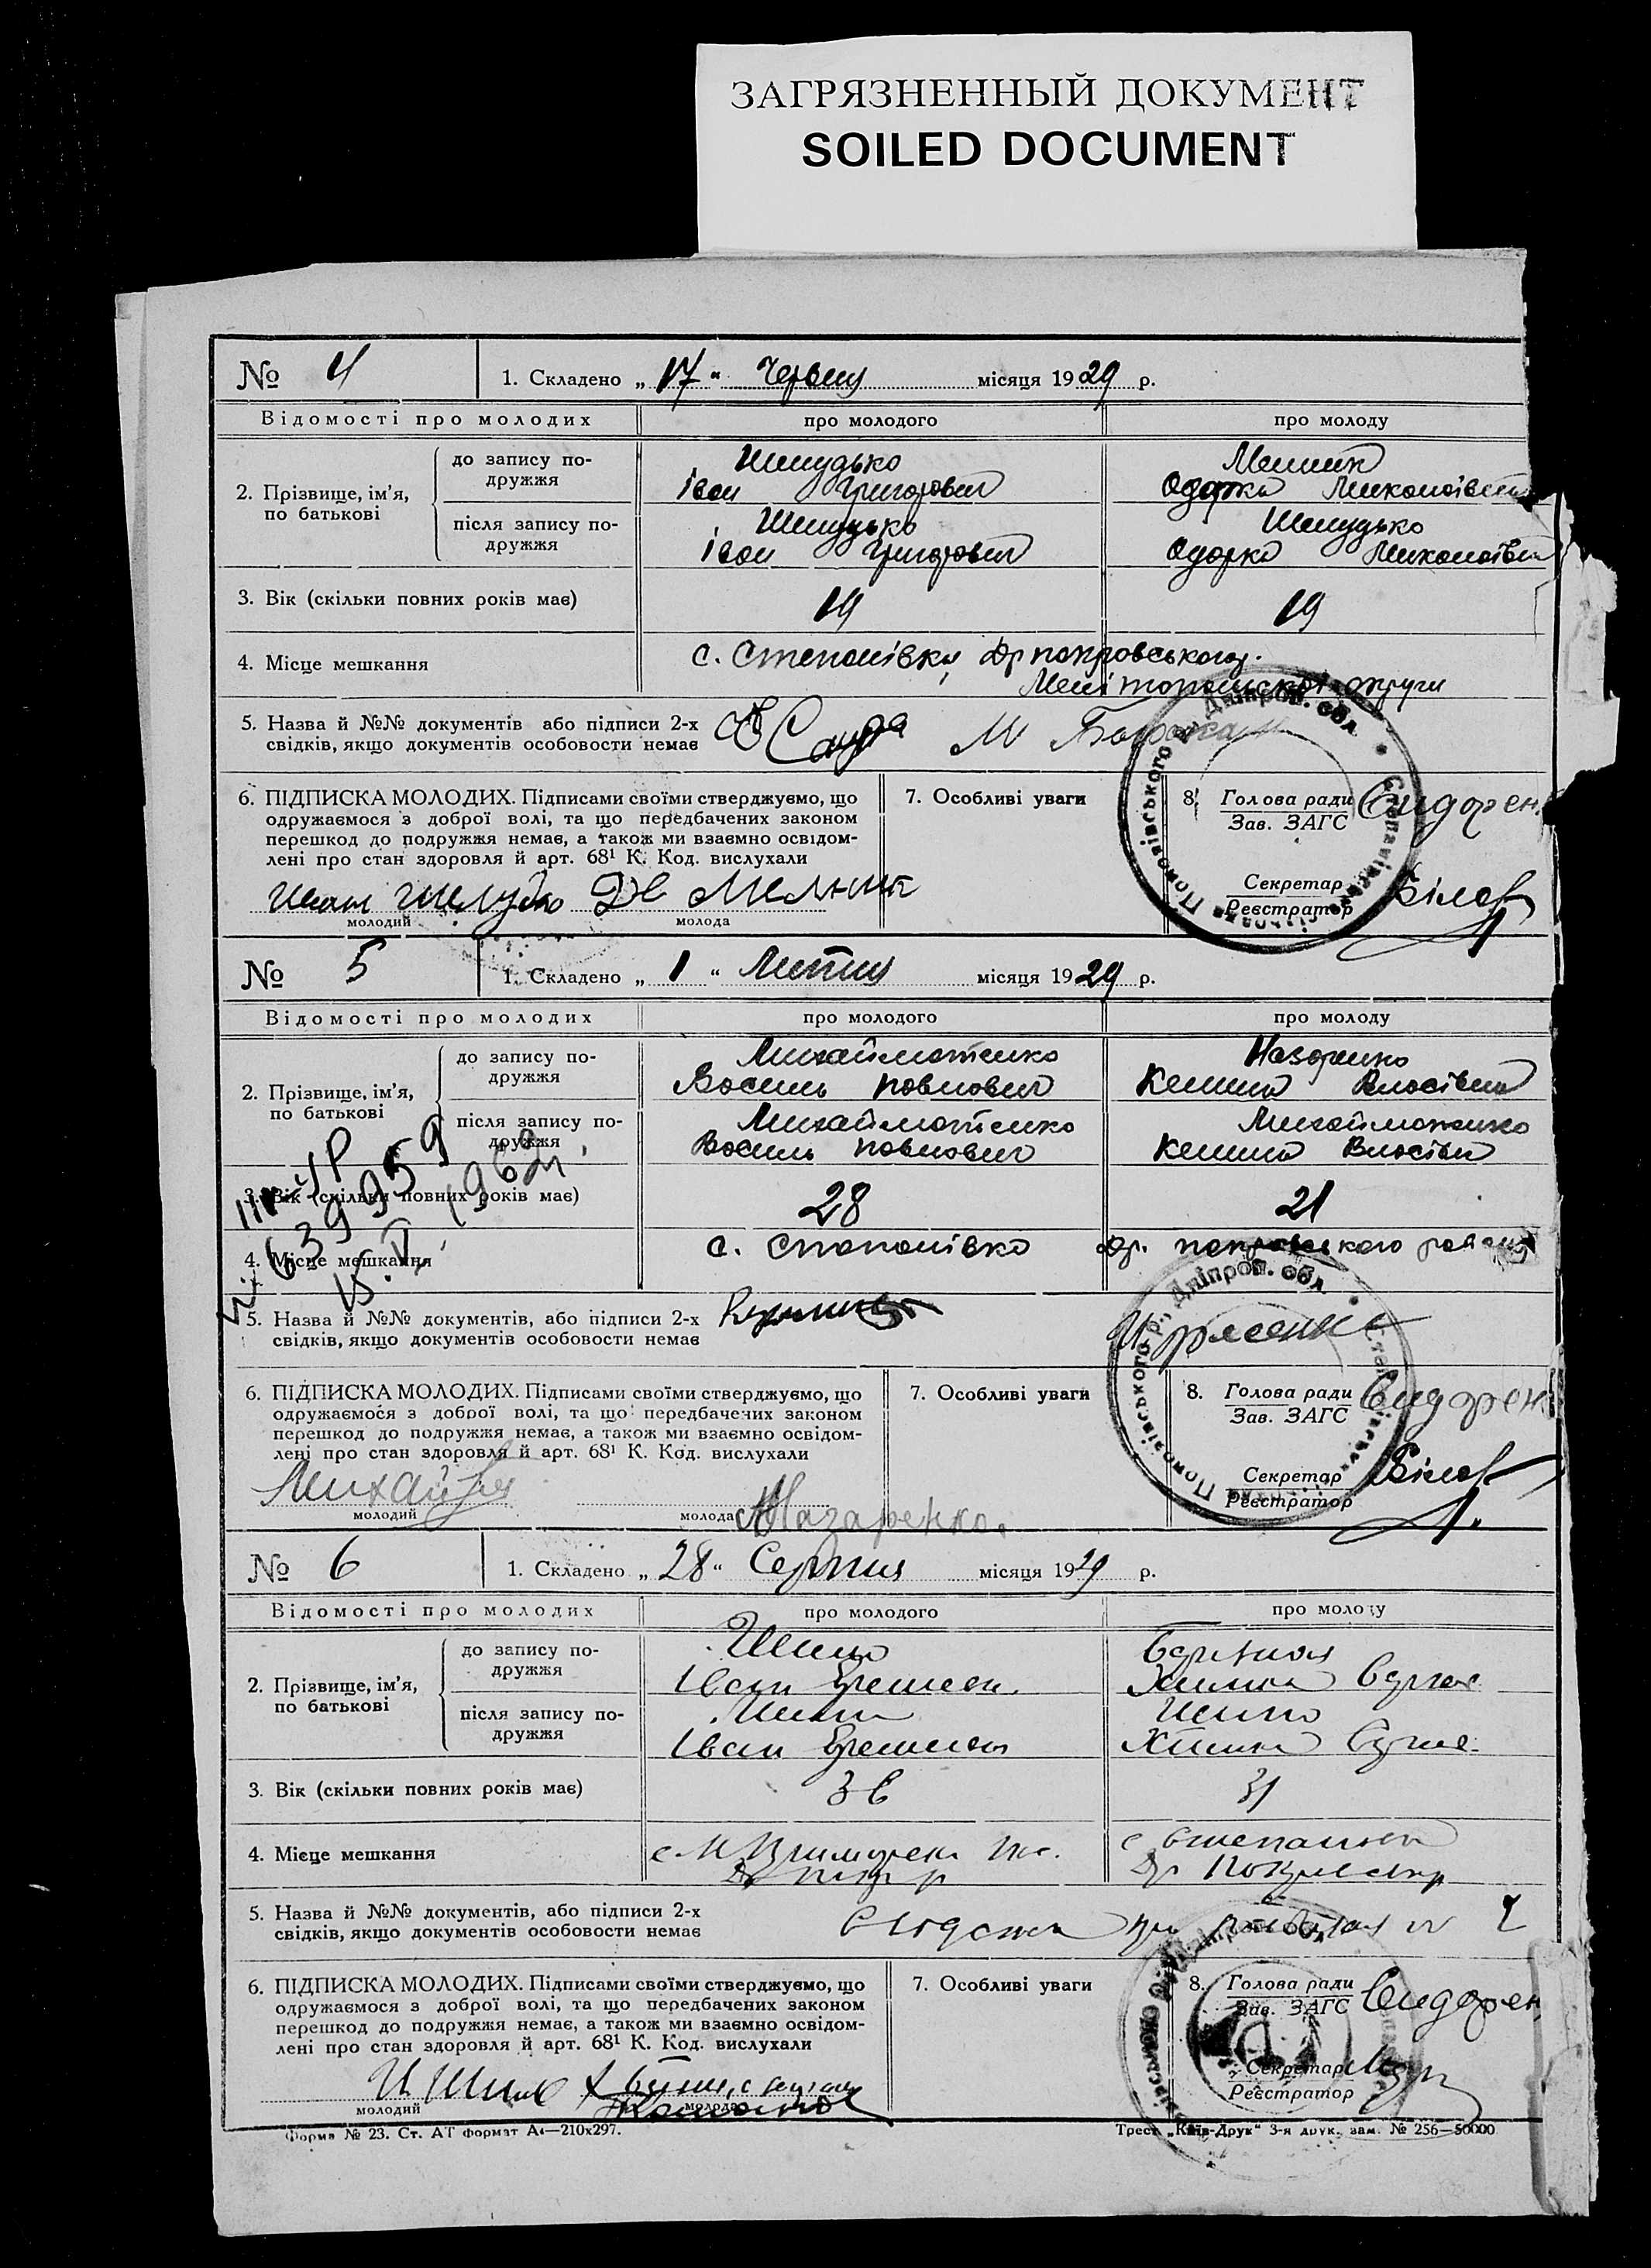 ЗАГРЯЗНЕННЫЙ ДОКУМЕНТ
SOILED DOCUMENT
№ 4 1. Складено „17“ Червня місяця 1929 р.
Відомості про молодих про молодого про молоду
2. Прізвище, ім’я, по батькові
до запису подружжя
Шелудько Мельник
Іван Григорович Одарка Миколаївна
після запису подружжя
Шелудько Шелудько
Іван Григорович Одарка Миколаївна
3. Вік (скільки повних років має) 19 19
4. Місце мешкання с. Степанівка Др покровського р.
Мелітопольської округи
5. Назва й №№ документів або підписи 2-х
свідків, якщо документів особовости немає
6. ПІДПИСКА МОЛОДИХ. Підписами своїми стверджуємо, що
одружаємося з доброї волі, та що передбачених законом
перешкод до подружжя немає, а також ми взаємно освідом-
лені про стан здоровля й арт. 68¹ К. Код. вислухали
Иван Шелудко Мельник
молодий молода
7. Особливі уваги
8. Голова ради Сидорен
Зав. ЗАГС
Секретар Білов
Реєстратор
№ 5 1. Складено „1“ Липня місяця 1929 р.
Відомості про молодих про молодого про молоду
2. Прізвище, ім’я, по батькові
до запису подружжя
Михайматенко Назаренко
Василь Павлович Келина Власівна
після запису подружжя
Михайматенко Михайматенко
Василь Павлович Келина Власівн
3. Вік (скільки повних років має) 28 21
4. Місце мешкання с. Степанівка Др. покровського району
639959
1962
5. Назва й №№ документів, або підписи 2-х
свідків, якщо документів особовости немає
6. ПІДПИСКА МОЛОДИХ. Підписами своїми стверджуємо, що
одружаємося з доброї волі, та що передбачених законом
перешкод до подружжя немає, а також ми взаємно освідом-
лені про стан здоровля й арт. 68¹ К. Код. вислухали
Назаренко.
молодий молода
7. Особливі уваги
8. Голова ради Сидорен
Зав. ЗАГС
Секретар Білов
Реєстратор
№ 6 1. Складено „28“ Серпня місяця 1929 р.
Відомості про молодих про молодого про молоду
2. Прізвище, ім’я, по батькові
до запису подружжя
Шило
Іван
після запису подружжя
Шило Шило
Іван
3. Вік (скільки повних років має) 36 31
4. Місце мешкання с Степанівка
Др Покровськ р
5. Назва й №№ документів, або підписи 2-х
свідків, якщо документів особовости немає
6. ПІДПИСКА МОЛОДИХ. Підписами своїми стверджуємо, що
одружаємося з доброї волі, та що передбачених законом
перешкод до подружжя немає, а також ми взаємно освідом-
лені про стан здоровля й арт. 68¹ К. Код. вислухали
И Шило
молодий молода
7. Особливі уваги
8. Голова ради Сидорен
Зав. ЗАГС
Секретар
Реєстратор
Форма № 23. Ст. АТ формат А4—210x297.
Трест „Київ-Друк“ 3-я друк. зам. № 256—50000